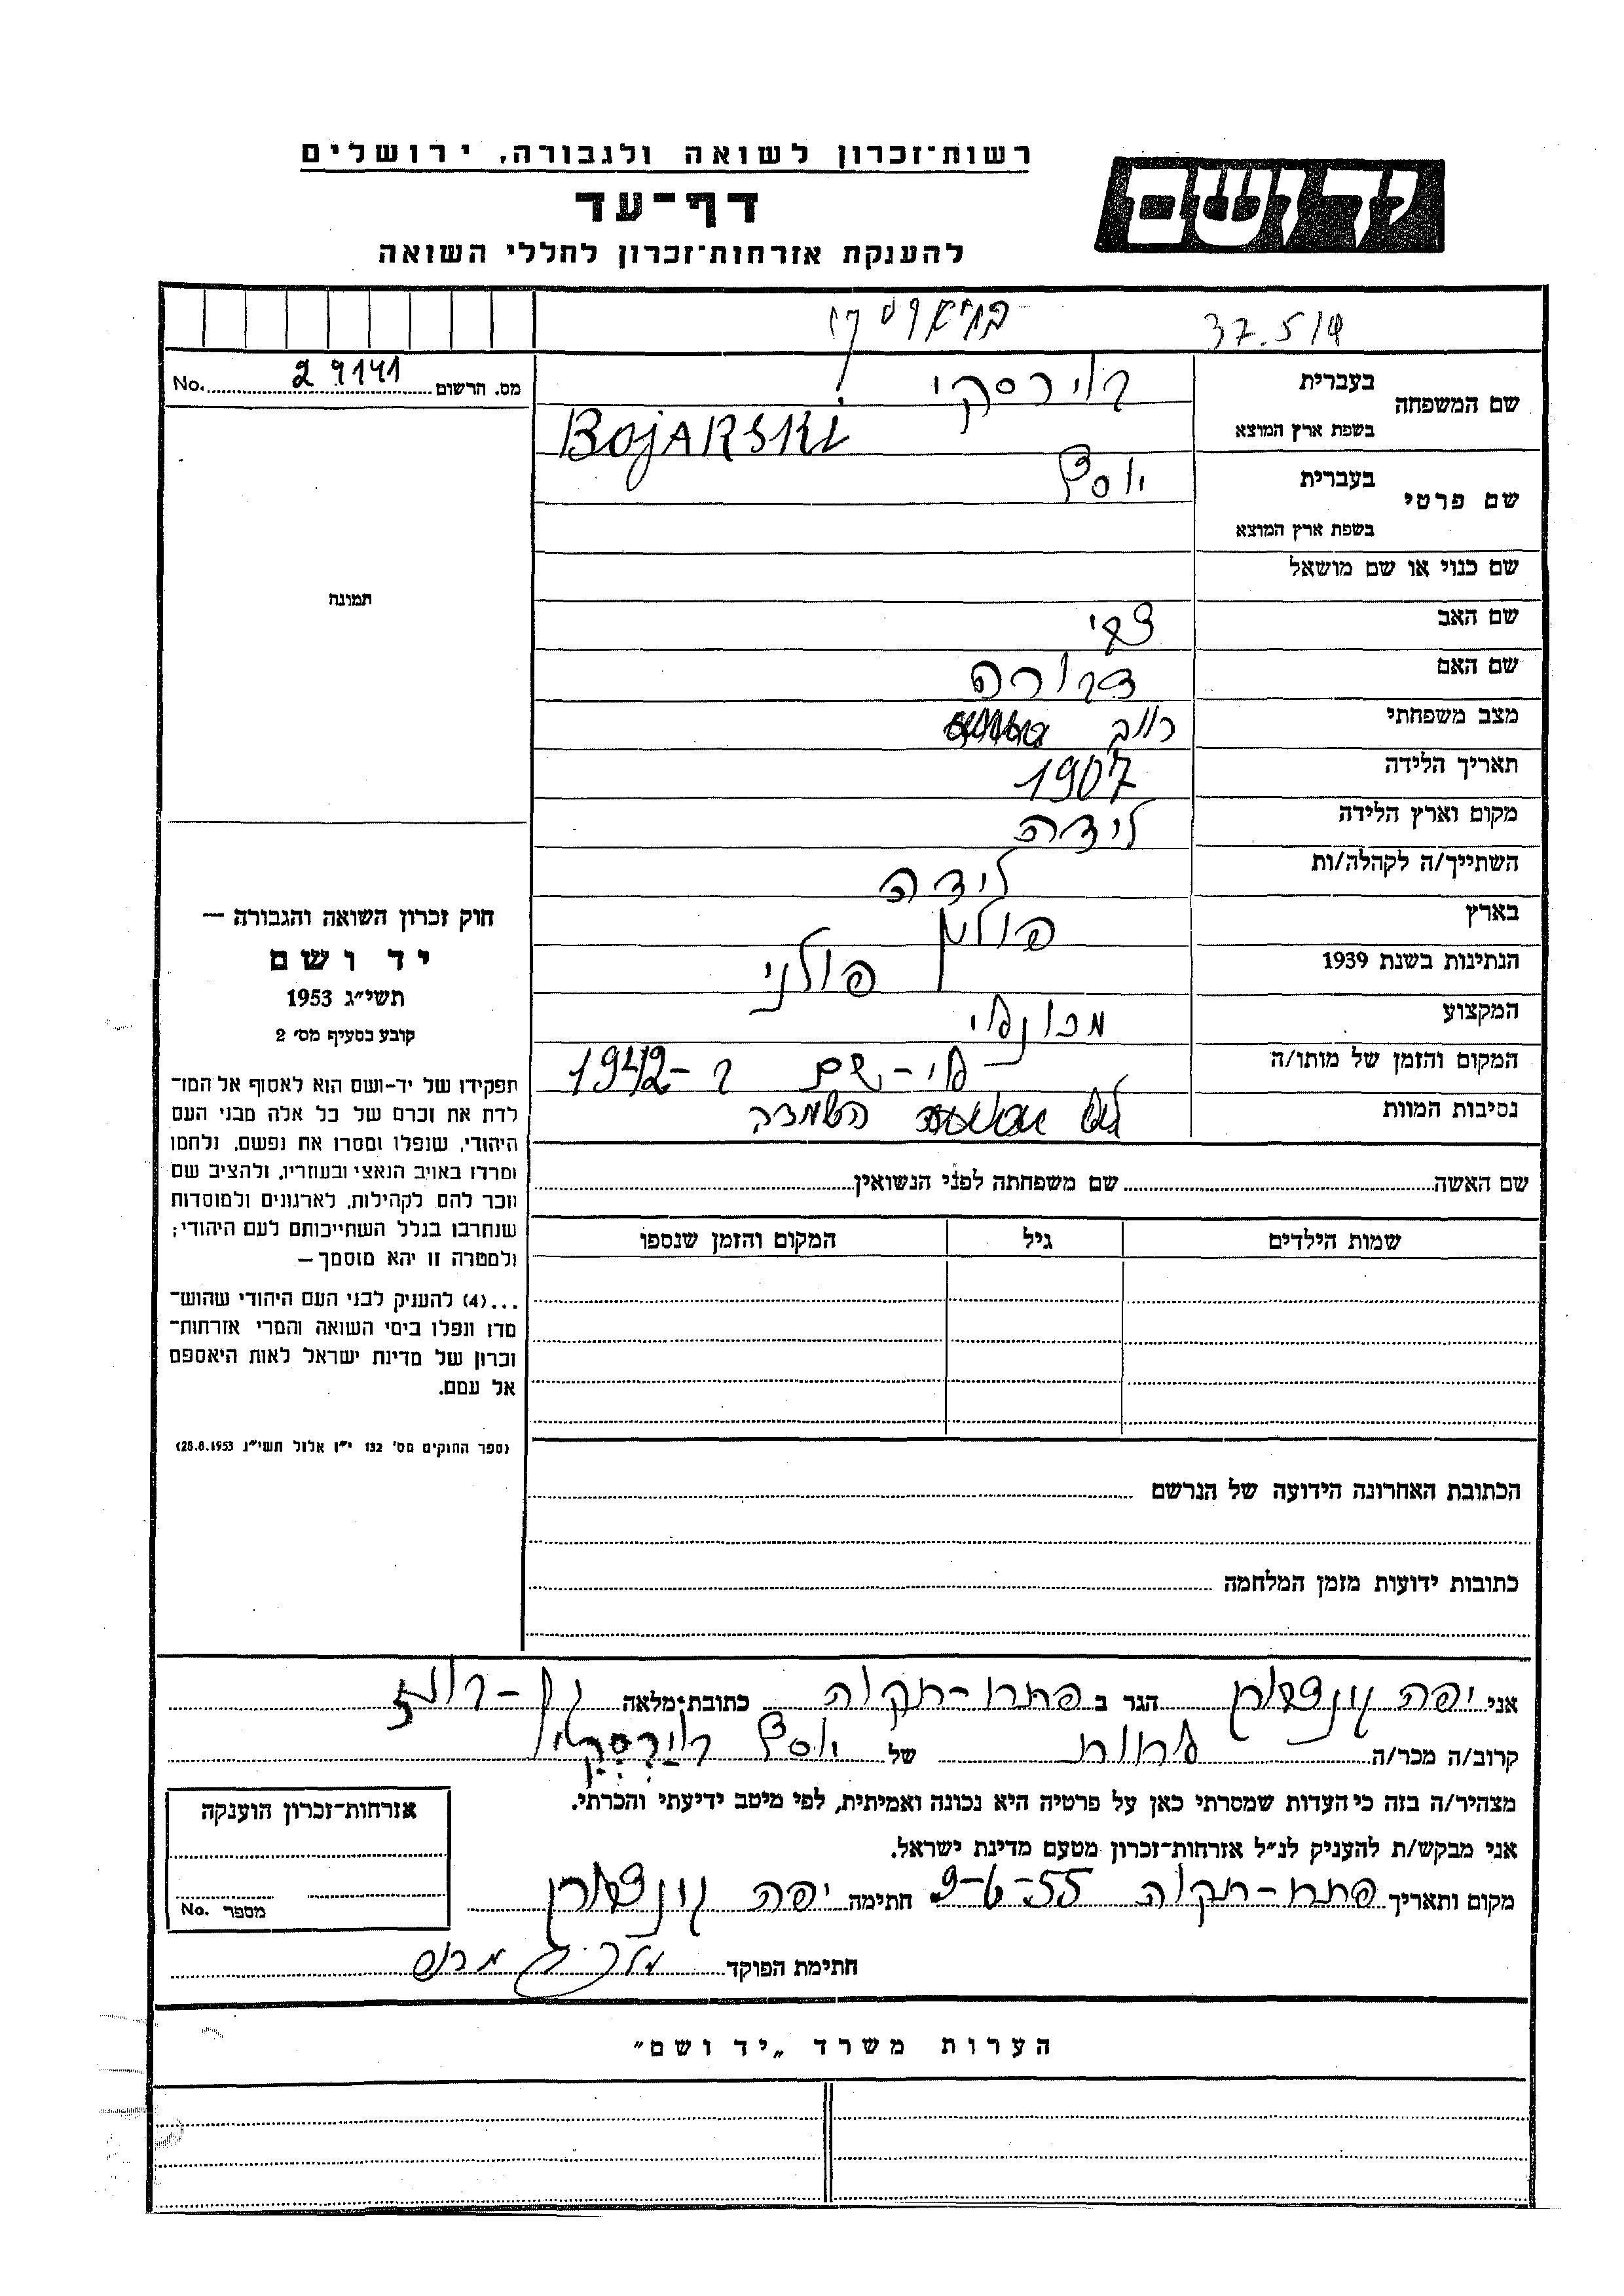 רשות־זכרון לשואה ולגבורה, ירושלים
יד ושם
דף־עד
להענקת אזרחות־זכרון לחללי השואה
בויארסקי
מס. הרשום 29141 No.
שם המשפחה
בעברית בוירסקי
בשפת ארץ המוצא BOJARSKI
שם פרטי
בעברית יוסף
בשפת ארץ המוצא
שם כנוי או שם מושאל
שם האב צבי
שם האם דבורה
מצב משפחתי רווק
תאריך הלידה 1907
מקום וארץ הלידה לידה
השתייך/ה לקהלה/ות לידה
בארץ פולין
הנתינות בשנת 1939 פולני
המקצוע מכונאי
המקום והזמן של מותו/ה אי-שם ב-1942
נסיבות המוות השמדה
תמונה
חוק זכרון השואה והגבורה —
יד ושם
תשי״ג 1953
קובע בסעיף מס׳ 2
תפקידו של יד-ושם הוא לאסוף אל המו־
לדת את זכרם של כל אלה מבני העם
היהודי, שנפלו ומסרו את נפשם, נלחמו
ומרדו באויב הנאצי ובעוזריו, ולהציב שם
וזכר להם לקהילות, לארגונים ולמוסדות
שנחרבו בגלל השתייכותם לעם היהודי;
ולמטרה זו יהא מוסמך—
...(4) להעניק לבני העם היהודי שהוש־
מדו ונפלו בימי השואה והמרי אזרחות־
זכרון של מדינת ישראל לאות היאספם
אל עמם.
(ספר החוקים מס׳ 132 י״ז אלול תשי״ג 28.8.1953)
שם האשה שם משפחתה לפני הנשואין
שמות הילדים גיל המקום והזמן שנספו
הכתובת האחרונה הידועה של הנרשם
כתובות ידועות מזמן המלחמה
אני יפה הגר ב פתח-תקוה כתובת־מלאה
קרוב/ה מכר/ה אחות של יוסף בוירסקי
מצהיר/ה בזה כי העדות שמסרתי כאן על פרטיה היא נכונה ואמיתית, לפי מיטב ידיעתי והכרתי.
אני מבקש/ת להעניק לנ״ל אזרחות־זכרון מטעם מדינת ישראל.
מקום ותאריך פתח-תקוה 9-6-55 חתימה יפה
חתימת הפוקד
אזרחות־זכרון הוענקה
מספר No.
הערות משרד „יד ושם״